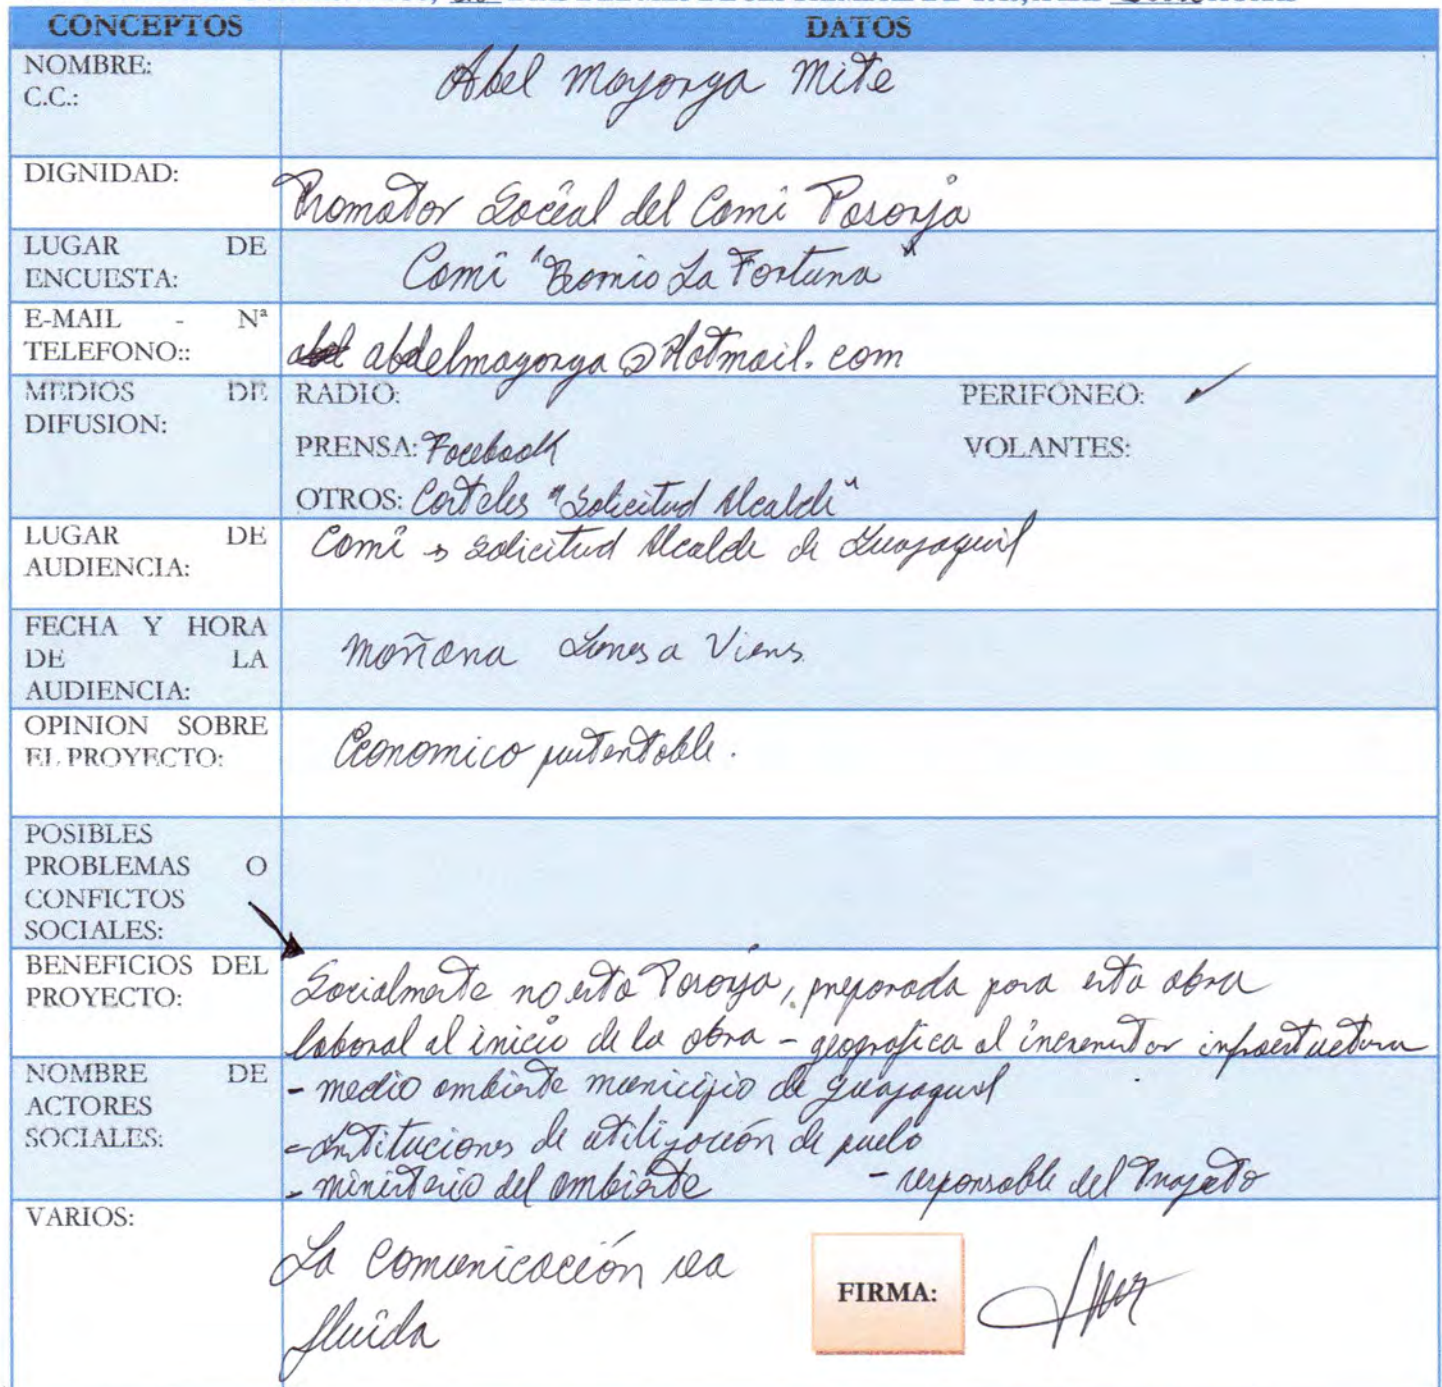 CONCEPTOS DATOS
NOMBRE: Abel Mayorga Mite
C.C.:
DIGNIDAD:
Promotor Social del Cami Posorja
LUGAR DE ENCUESTA: Cami "Barrio La Fortuna"
E-MAIL - Nª TELEFONO:: abdelmayorga@Hotmail.com
MEDIOS DE DIFUSION:
RADIO: PERIFONEO: ✓
PRENSA: Facebook VOLANTES:
OTROS: Carteles "Solicitud Alcalde"
LUGAR DE AUDIENCIA: Cami → Solicitud Alcalde de Guayaquil
FECHA Y HORA DE LA AUDIENCIA: mañana Lunes a Viens
OPINION SOBRE EL PROYECTO: Economico sustentable.
POSIBLES PROBLEMAS O CONFICTOS SOCIALES:
BENEFICIOS DEL PROYECTO:
Socialmente no esta Posorja, preparada para esta obra
laboral al inicio de la obra - geografica al incrementar infraestuctura
NOMBRE DE ACTORES SOCIALES:
- medio ambiente municipio de Guayaquil
- Instituciones de utilización de suelo
- ministerio del ambiente - responsable del Proyecto
VARIOS:
La comunicación sea
fluida
FIRMA: